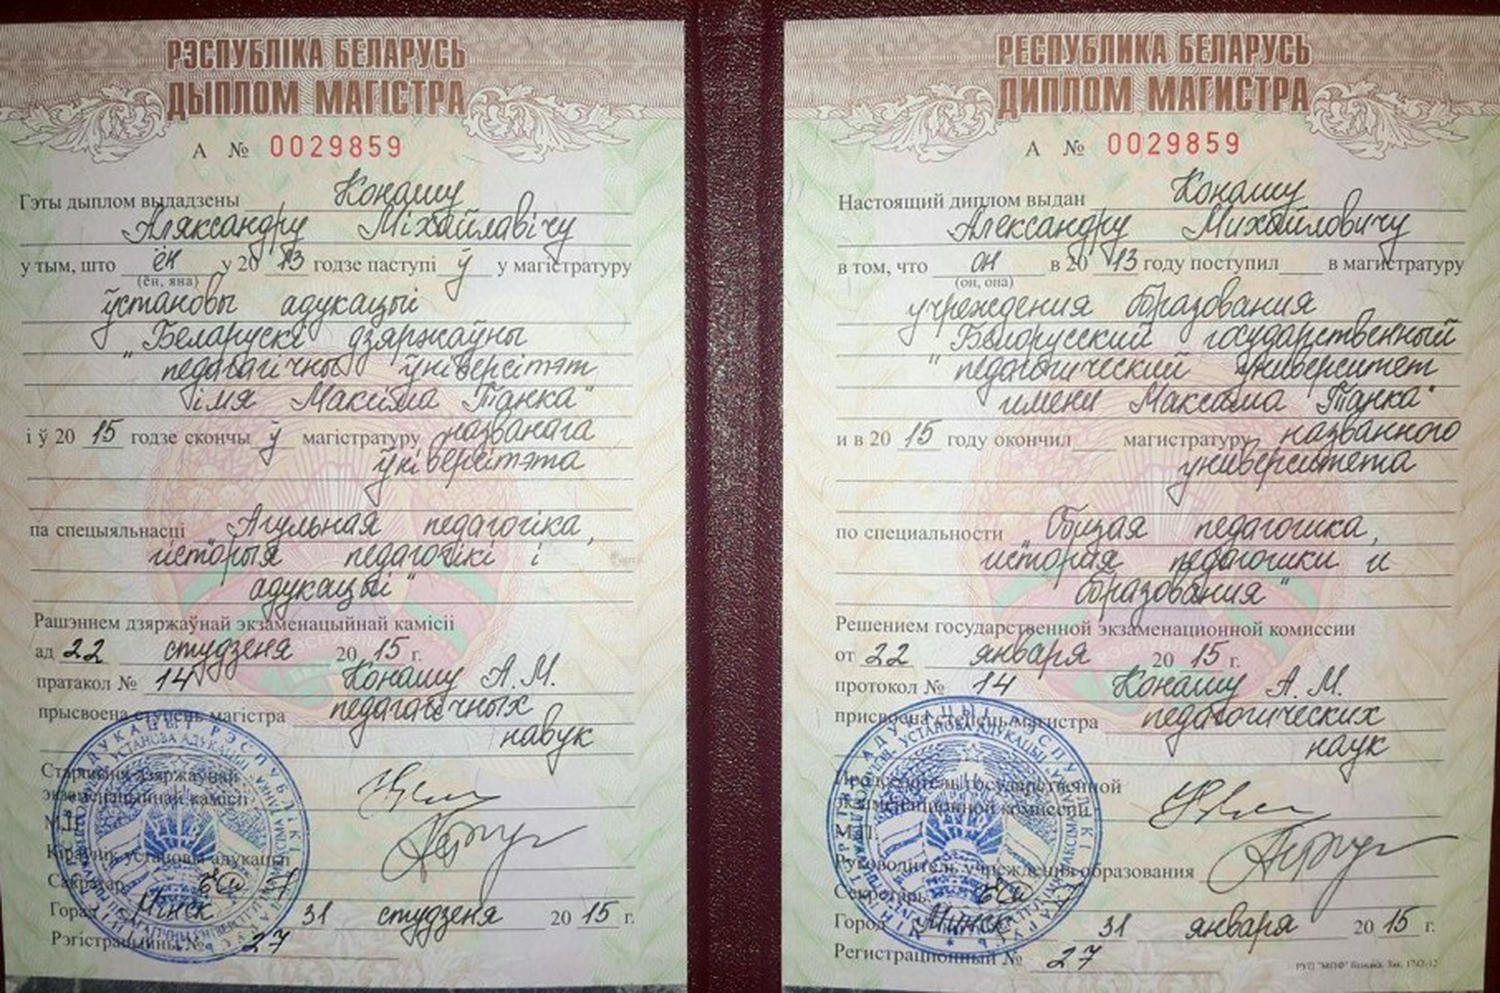 РЭСПУБЛІКА БЕЛАРУСЬ
ДЫПЛОМ МАГІСТРА
А № 0029859
Гэты дыплом выдадзены Конашу
Аляксандру Міхайлавічу
у тым, што ён у 20 13 годзе паступі ў у магістратуру
(ён, яна)
ўстановы адукацыі
"Беларускі дзяржаўны
педагагічны ўніверсітэт
імя Максіма Танка"
і ў 20 15 годзе скончы ў магістратуру названага
ўніверсітэта
па спецыяльнасці Агульная педагогіка,
гісторыя педагогікі і
адукацыі"
Рашэннем дзяржаўнай экзаменацыйнай камісіі
ад 22 студзеня 20 15 г.
пратакол № 14 Конашу А.М.
прысвоена ступень магістра педагагічных
навук
Старшыня дзяржаўнай
экзаменацыйнай камісіі
М.П.
Кіраўнік установы адукацыі
Сакратар
Горад Мінск 31 студзеня 20 15 г.
Рэгістрацыйны № 27
РЕСПУБЛИКА БЕЛАРУСЬ
ДИПЛОМ МАГИСТРА
А № 0029859
Настоящий диплом выдан Конашу
Александру Михайловичу
в том, что он в 20 13 году поступил в магистратуру
(он, она)
учреждения образования
"Белорусский государственный
педагогический университет
имени Максима Танка"
и в 20 15 году окончил магистратуру названного
университета
по специальности "Общая педагогика,
история педагогики и
образования"
Решением государственной экзаменационной комиссии
от 22 января 20 15 г.
протокол № 14 Конашу А.М.
присвоена степень магистра педагогических
наук
Председатель государственной
экзаменационной комиссии
М.П.
Руководитель учреждения образования
Секретарь
Город Минск 31 января 20 15 г.
Регистрационный № 27